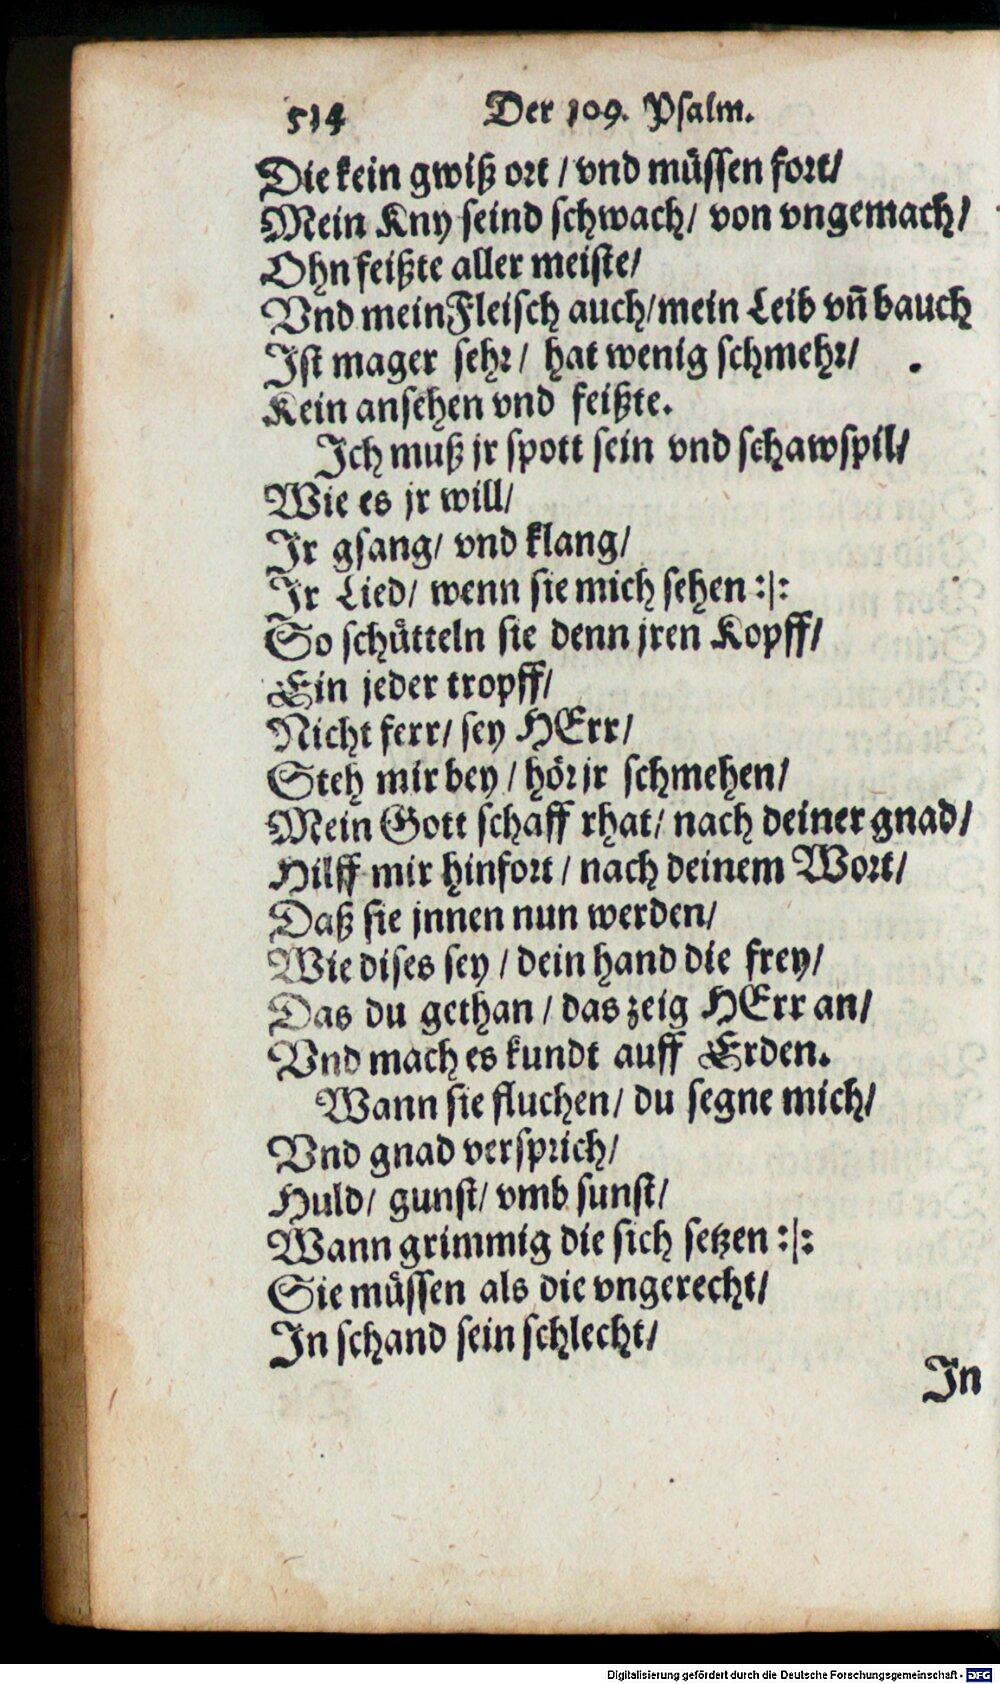 514 Der 109. Psalm.
Die kein gwiß ort / vnd müssen fort/
Mein Kny seind schwach/ von vngemach/
Ohn feißte aller meiste/
Vnd mein Fleisch auch/mein Leib vn̄ bauch
Ist mager sehr/ hat wenig schmehr/
Kein ansehen vnd feißte.
Ich muß jr spott sein vnd schawspil/
Wie es jr will/
Ir gsang/ vnd klang/
Ir Lied/ wenn sie mich sehen :|:
So schütteln sie denn jren Kopff/
Ein jeder tropff/
Nicht ferr/ sey HErr/
Steh mir bey / hör jr schmehen/
Mein Gott schaff rhat/ nach deiner gnad/
Hilff mir hinfort / nach deinem Wort/
Daß sie jnnen nun werden/
Wie dises sey / dein hand die frey/
Das du gethan / das zeig HErr an/
Vnd mach es kundt auff Erden.
Wann sie fluchen/ du segne mich/
Vnd gnad versprich/
Huld/ gunst/ vmb sunst/
Wann grimmig die sich setzen :|:
Sie müssen als die vngerecht/
In schand sein schlecht/
In
Digitalisierung gefördert durch die Deutsche Forschungsgemeinschaft - DFG